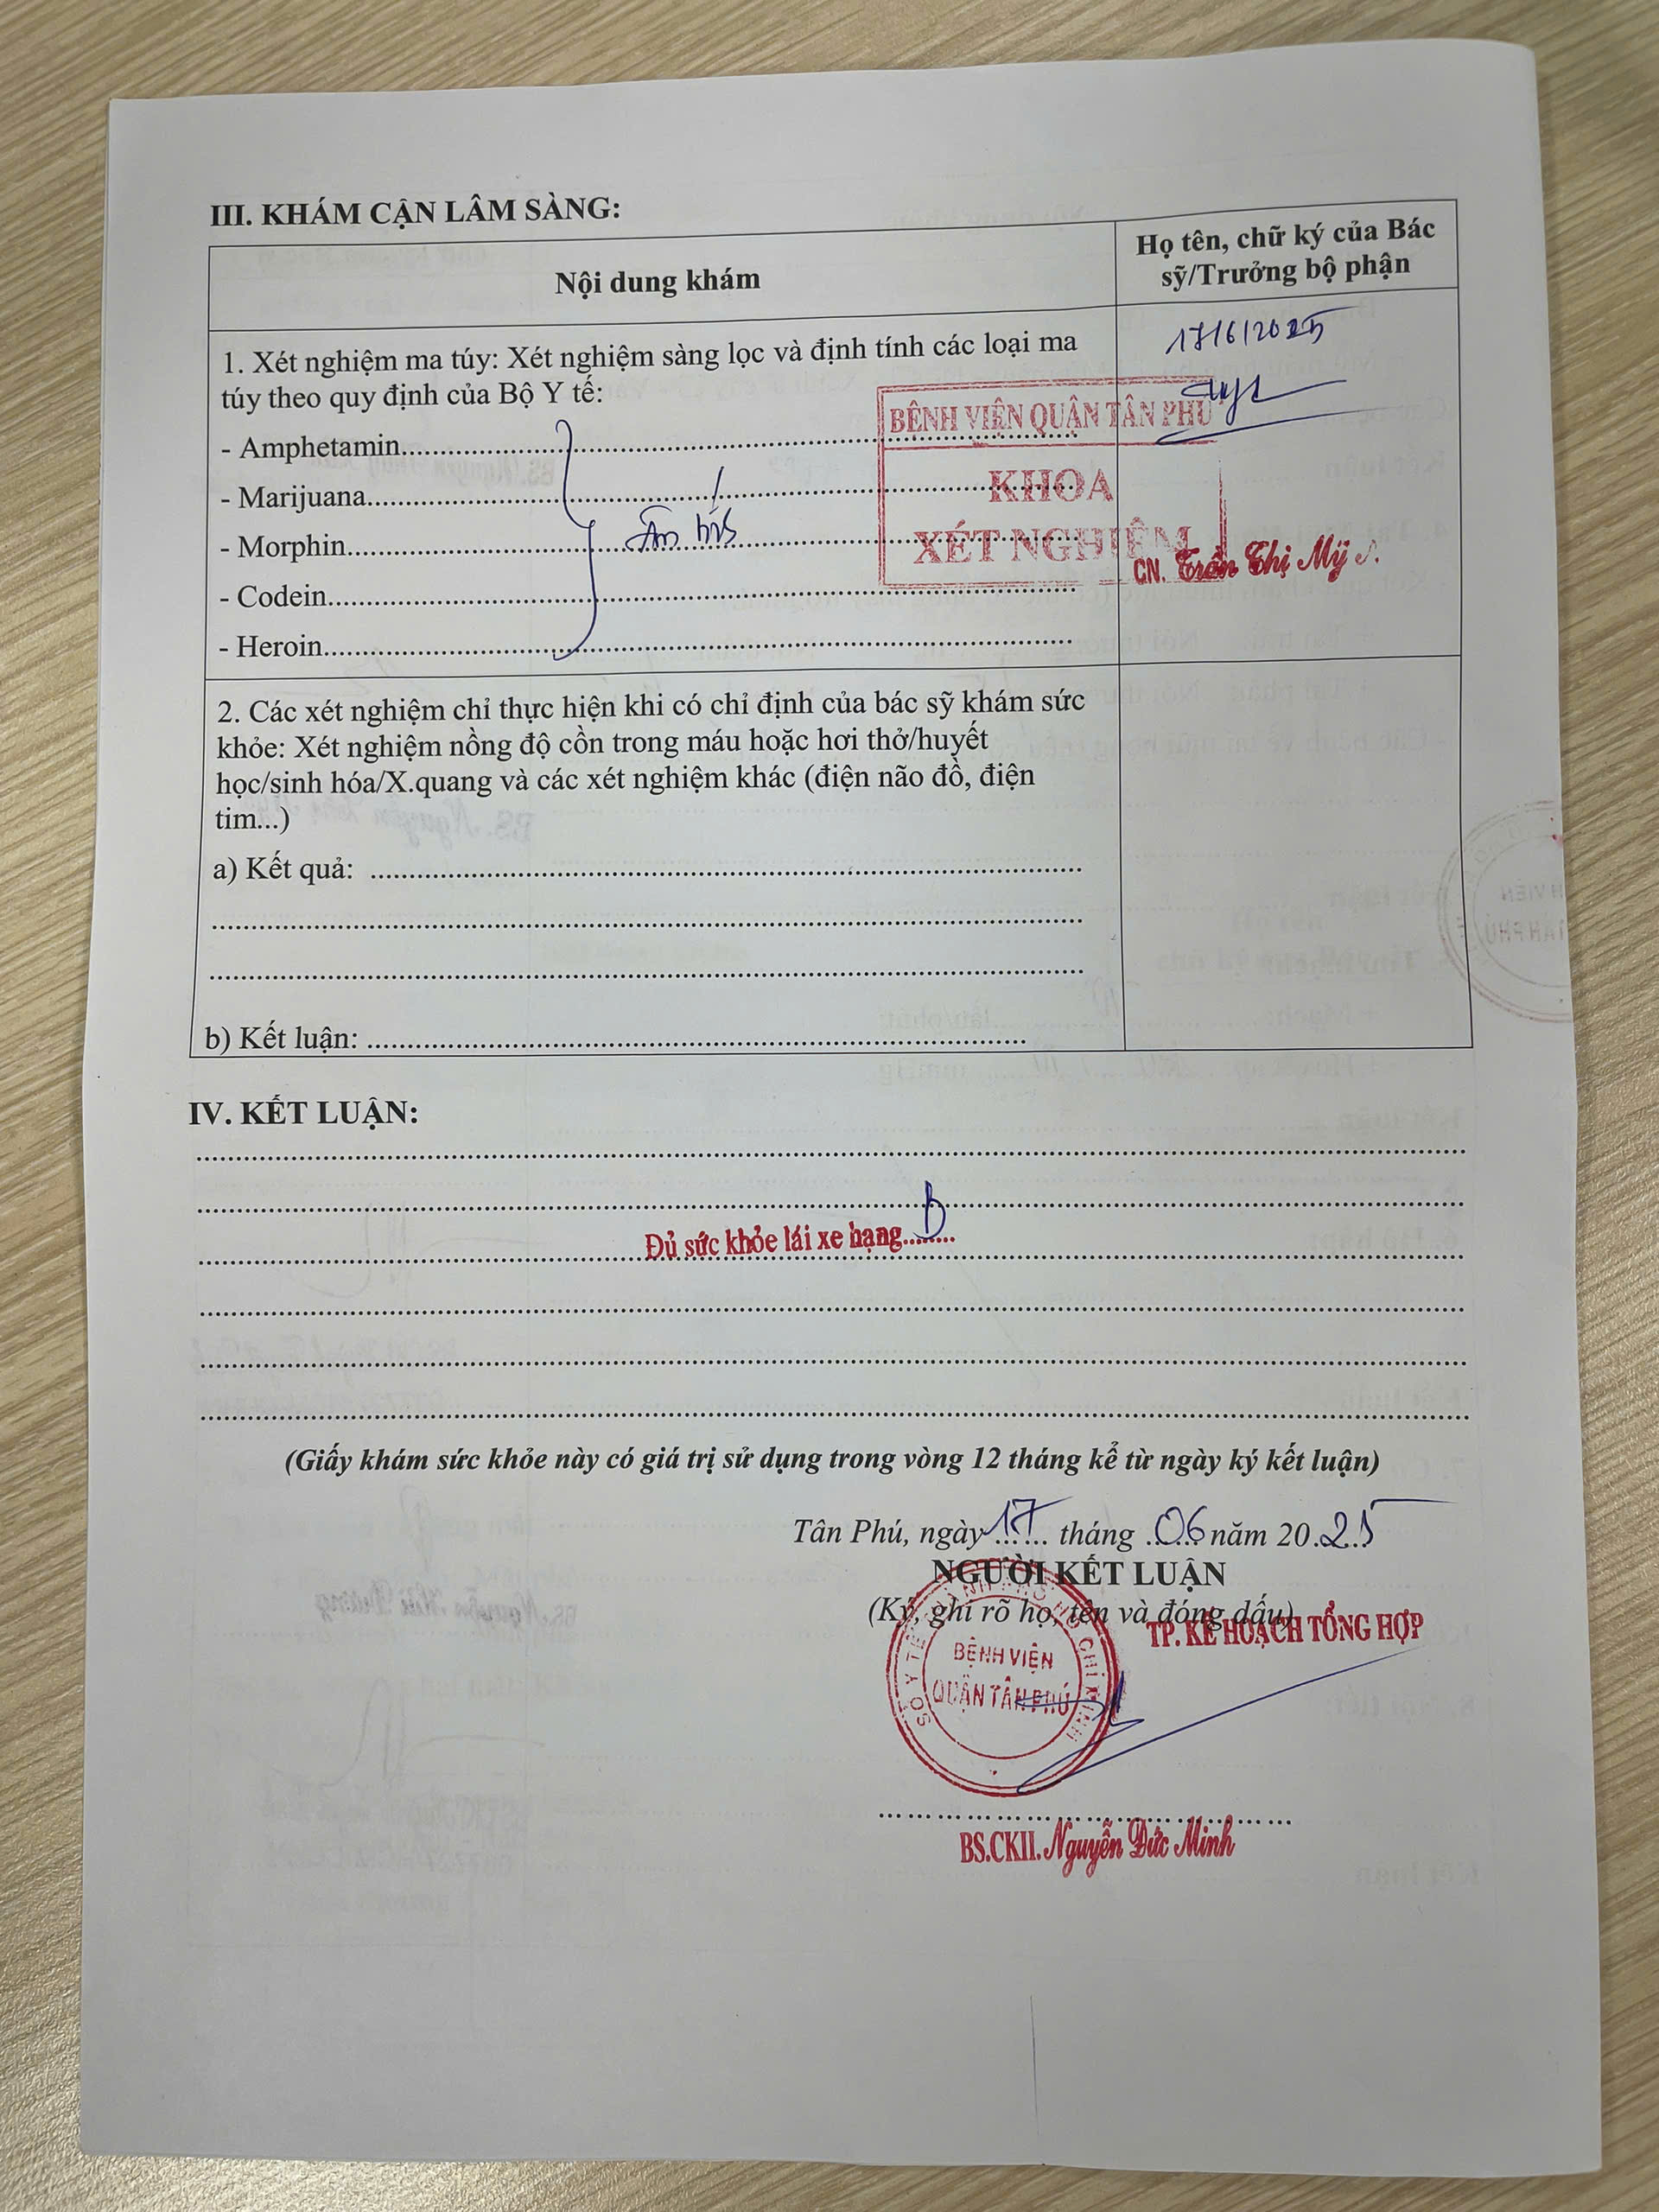 III. KHÁM CẬN LÂM SÀNG:
Nội dung khám
Họ tên, chữ ký của Bác
sỹ/Trưởng bộ phận
1. Xét nghiệm ma túy: Xét nghiệm sàng lọc và định tính các loại ma
túy theo quy định của Bộ Y tế:
- Amphetamin
- Marijuana
- Morphin
- Codein
- Heroin
Âm tính
17/6/2025
BỆNH VIỆN QUẬN TÂN PHÚ
KHOA
XÉT NGHIỆM
CN. Trần Thị Mỹ
2. Các xét nghiệm chỉ thực hiện khi có chỉ định của bác sỹ khám sức
khỏe: Xét nghiệm nồng độ cồn trong máu hoặc hơi thở/huyết
học/sinh hóa/X.quang và các xét nghiệm khác (điện não đồ, điện
tim...)
a) Kết quả:
b) Kết luận:
IV. KẾT LUẬN:
Đủ sức khỏe lái xe hạng
(Giấy khám sức khỏe này có giá trị sử dụng trong vòng 12 tháng kể từ ngày ký kết luận)
Tân Phú, ngày 17 tháng 06 năm 2025
NGƯỜI KẾT LUẬN
(Ký, ghi rõ họ, tên và đóng dấu)
TP. KẾ HOẠCH TỔNG HỢP
BỆNH VIỆN
QUẬN TÂN PHÚ
BS.CKII. Nguyễn Đức Minh